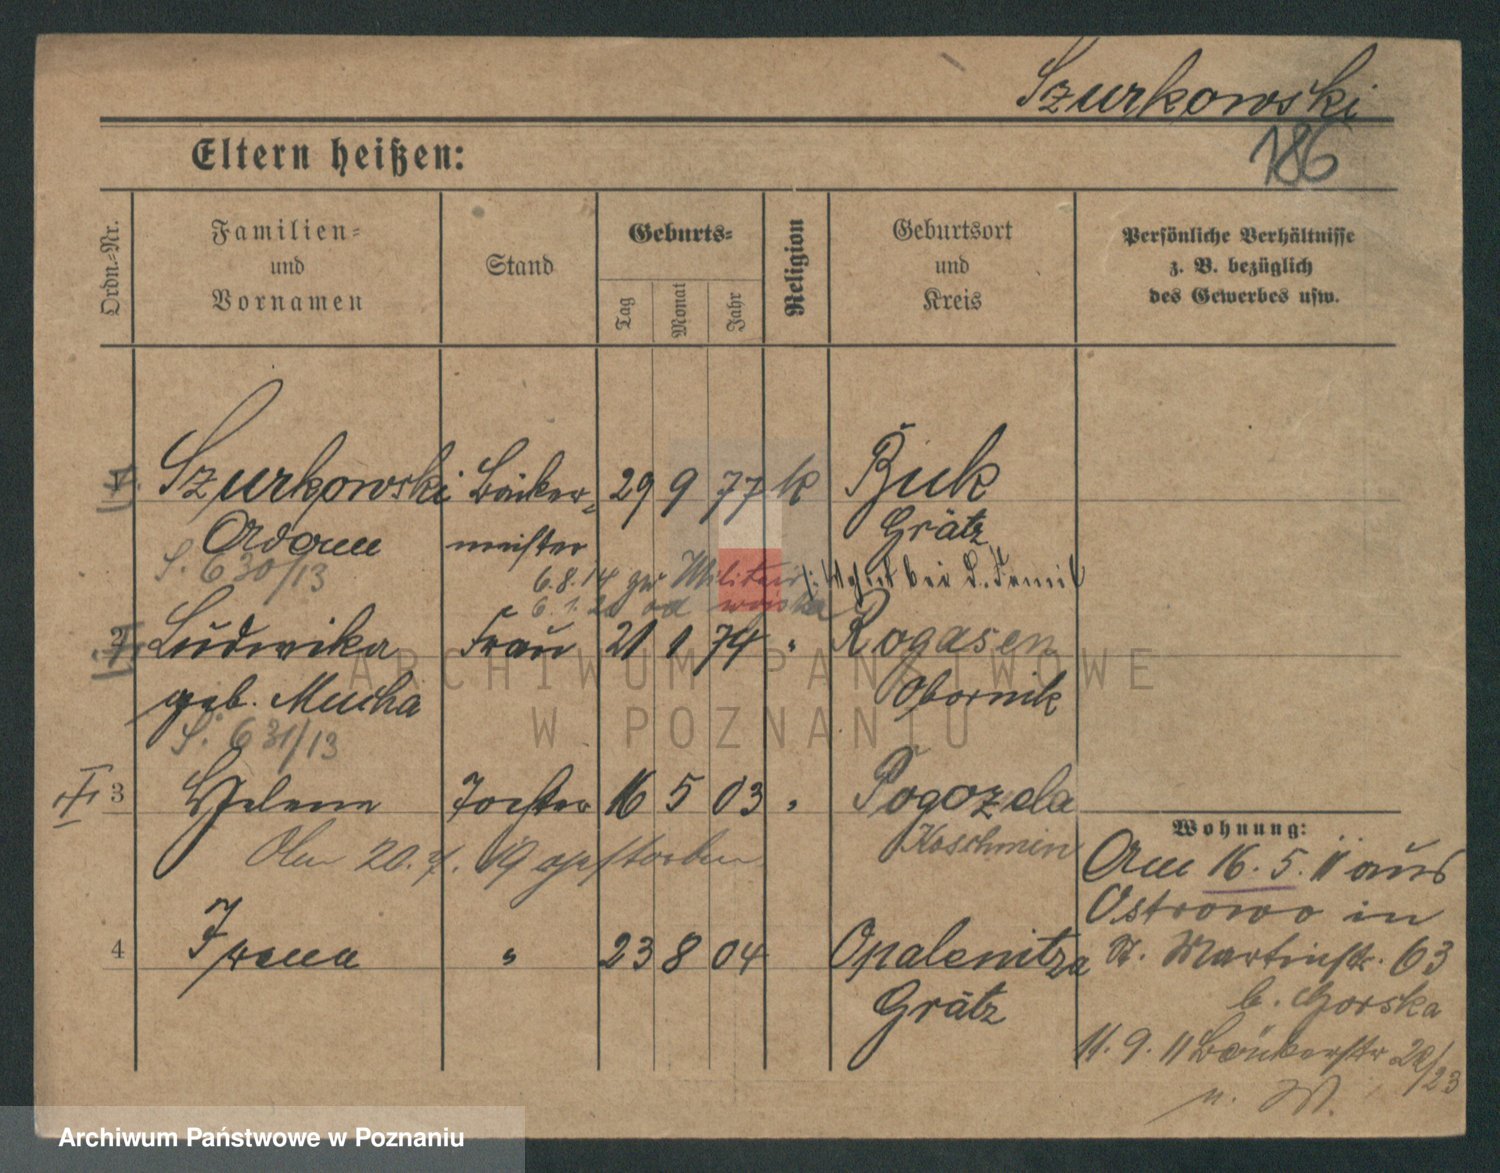 Szurkowski
186
Eltern heißen:
Ordn.-Nr.
Familien-
und
Vornamen
Stand
Geburts-
Tag
Monat
Jahr
Religion
Geburtsort
und
Kreis
Persönliche Verhältnisse
z. B. bezüglich
des Gewerbes usw.
Szurkowski Bäcker- 29 9 77 k Buk
Adam meister Grätz
S. 630/13
6.8.14 zur Militär bei
6. 1. 20 od wojska
2 Ludwika Frau 21 1 74 " Rogasen
geb. Mucha Obornik
S. 631/13
3 Helena Tochter 16 5 03 " Pogozela
Koschmin
Am 20. 7. 19 gestorben
4 Irena " 23 8 04 Opalenitza
Grätz
Wohnung:
Am 16. 5. 11 aus
Ostrowo in
St. Martinstr. 63
b. Gorska
11. 9. 11 Bäckerstr 22/23
n. W.
ARCHIWUM PAŃSTWOWE
W POZNANIU
Archiwum Państwowe w Poznaniu